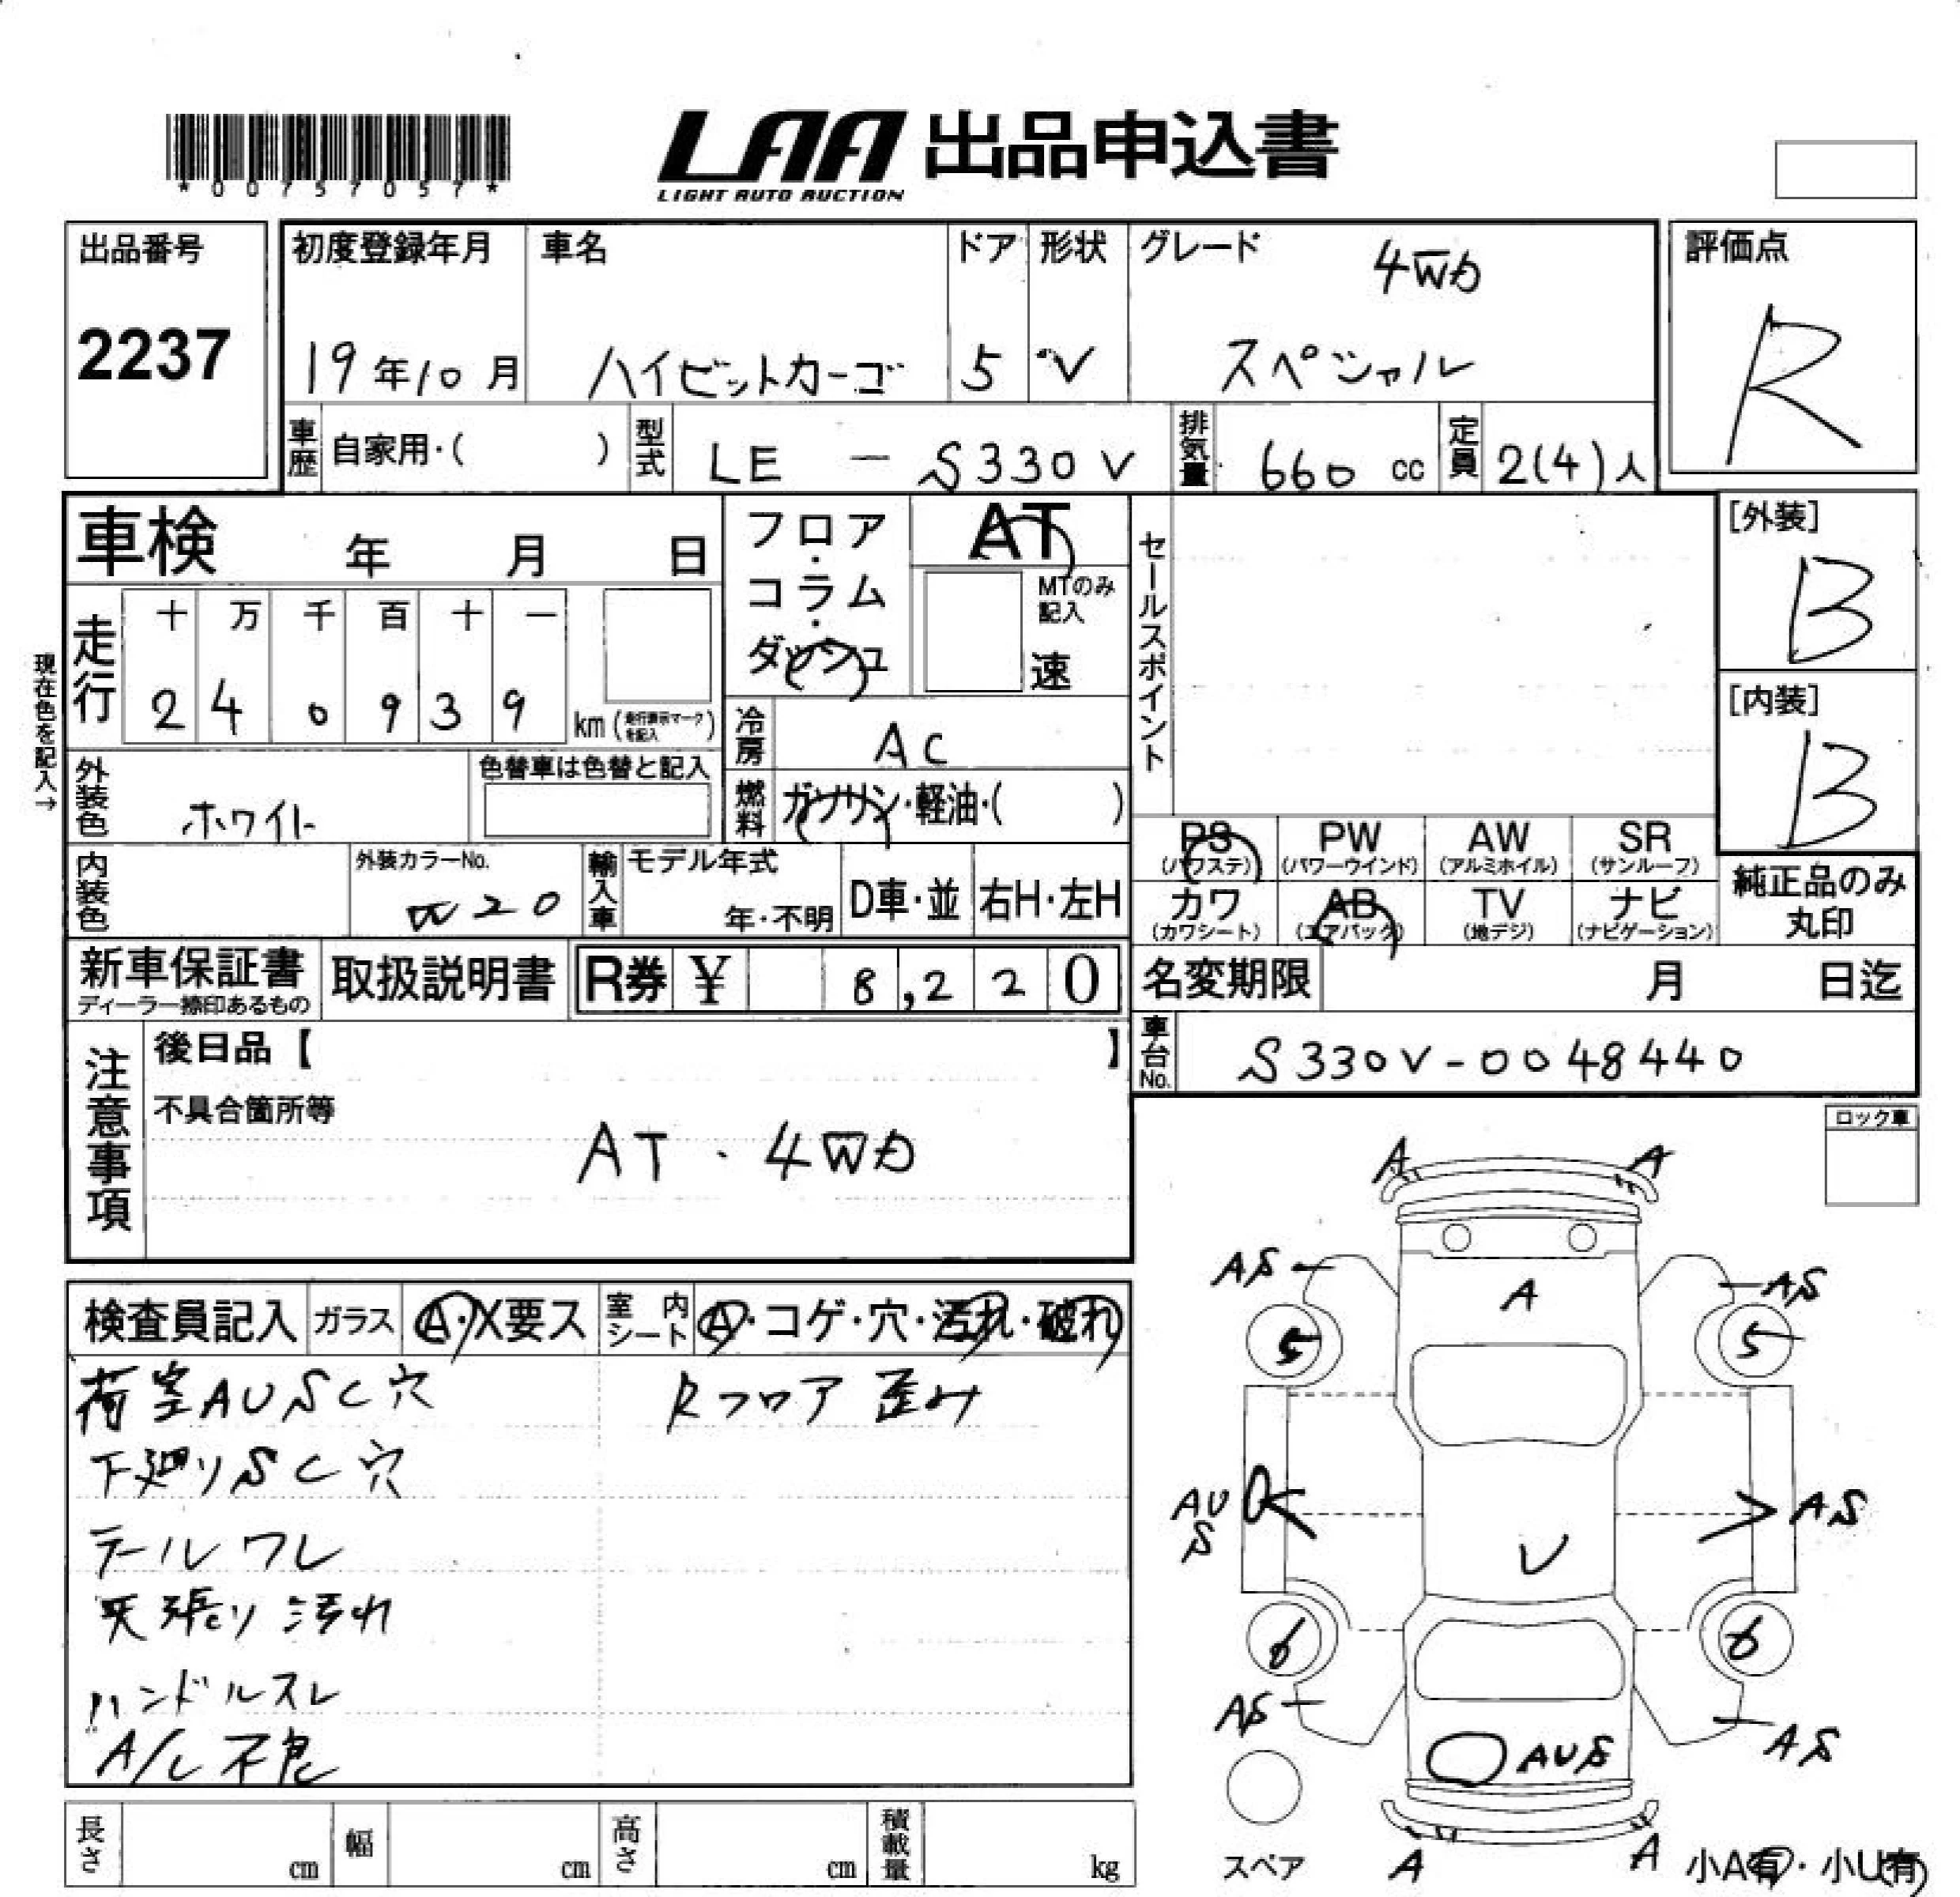 *00757057*
LAA 出品申込書
LIGHT AUTO AUCTION
出品番号
2237
初度登録年月
19年10月
車名
ハイゼットカーゴ
ドア
5
形状
V
グレード
4WD
スペシャル
評価点
R
車歴 自家用・( )
型式 LE - S330V
排気量 660 cc
定員 2(4)人
車検 年 月 日
フロア・コラム・ダッシュ
AT
MTのみ記入
速
セールスポイント
[外装]
B
[内装]
B
現在色を記入→
走行
十 万 千 百 十 一
2 4 0 9 3 9
km (走行表示マークを記入)
冷房 AC
外装色 ホワイト
色替車は色替と記入
燃料 ガソリン・軽油・( )
PS (パワステ)
PW (パワーウインド)
AW (アルミホイル)
SR (サンルーフ)
内装色
外装カラーNo.
W20
輸入車
モデル年式
年・不明
D車・並
右H・左H
カワ (カワシート)
AB (エアバック)
TV (地デジ)
ナビ (ナビゲーション)
純正品のみ
丸印
新車保証書
ディーラー捺印あるもの
取扱説明書
R券 ¥ 8,220
名変期限 月 日迄
注意事項
後日品【 】
不具合箇所等
AT・4WD
車台No. S330V-0048440
ロック車
検査員記入
ガラス A・X要ス
室内シート A・コゲ・穴・汚れ・破れ
荷室AUSC穴
Rフロア歪み
下廻りSC穴
テールワレ
天張り汚れ
ハンドルスレ
A/C不良
A A
AS AS
A
5 5
AUS
AS
U
6 6
AS AS
AUS
A A
スペア
小A有・小U有
長さ cm
幅 cm
高さ cm
積載量 kg